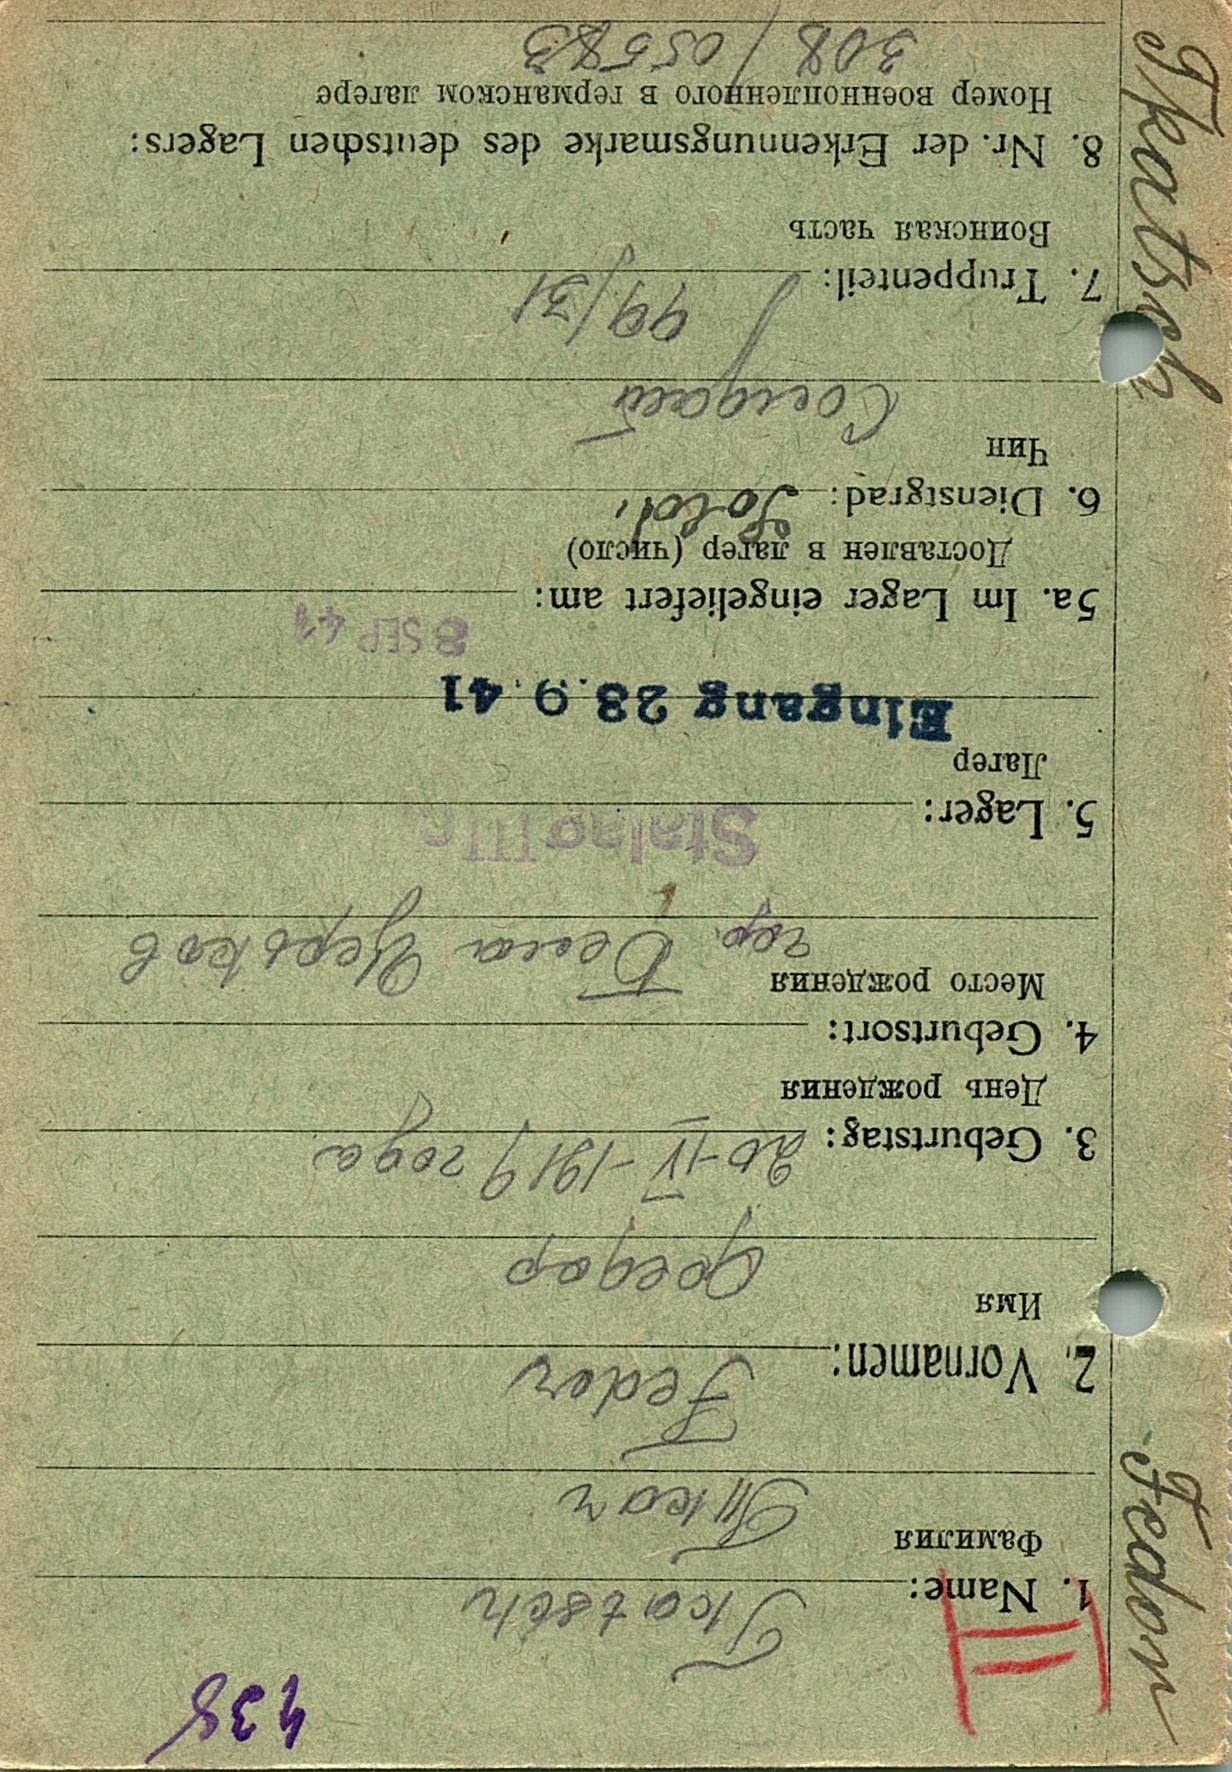 438
1. Name: Tkatsch
Фамилия Ткач
2. Vornamen: Fedor
Имя Федор
3. Geburtstag: 20-IV-1919 года
День рождения
4. Geburtsort:
Место рождения гор. Бела Церковь
5. Lager: Stalag III
Лагер
Eingang 28.9.41
8 SEP 41
5a. Im Lager eingeliefert am:
Доставлен в лагер (число)
6. Dienstgrad: Sold.
Чин
Солдат
7. Truppenteil: 99/31
Воинская часть
8. Nr. der Erkennungsmarke des deutschen Lagers:
Номер военнопленного в германском лагере
308/05583
Tkatsch Fedor